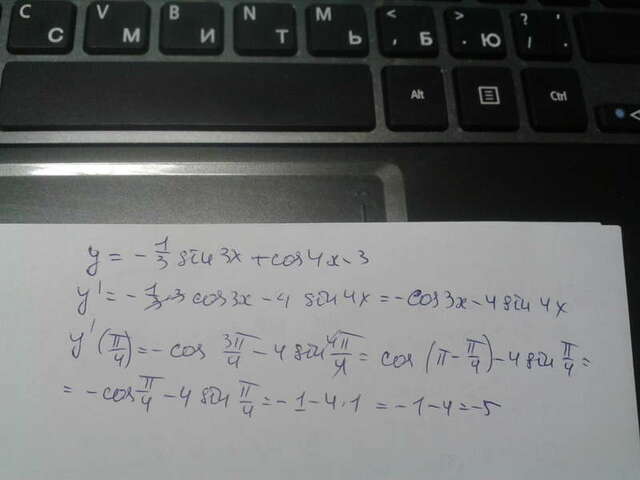 C V B N M < > ? '
С М И Т Ь , Б . Ю / .
Alt Ctrl
y = - 1/3 sin 3x + cos 4x - 3
y' = - 1/3·3 cos 3x - 4 sin 4x = - cos 3x - 4 sin 4x
y'(π/4) = - cos 3π/4 - 4 sin 4π/4 = cos (π - π/4) - 4 sin π/4 =
= - cos π/4 - 4 sin π/4 = - 1 - 4·1 = - 1 - 4 = -5